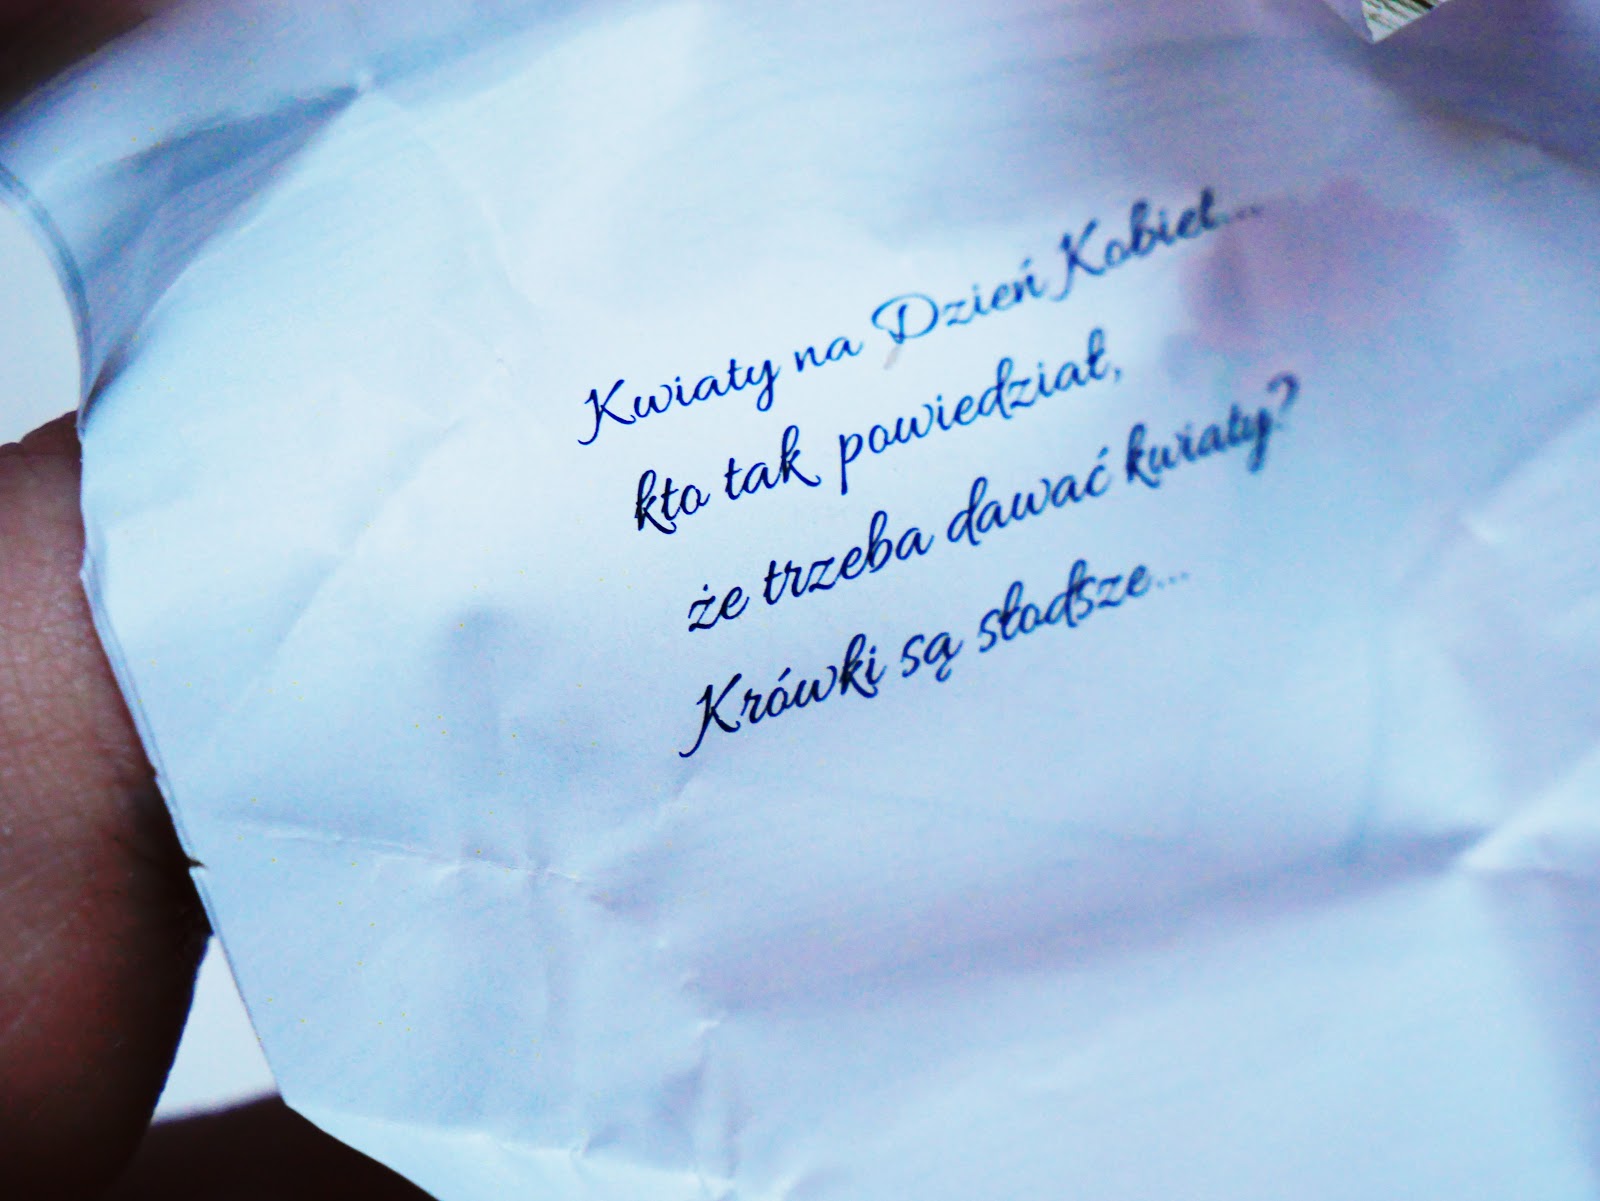 Kwiaty na Dzień Kobiet...
kto tak powiedział,
że trzeba dawać kwiaty?
Krówki są słodsze...